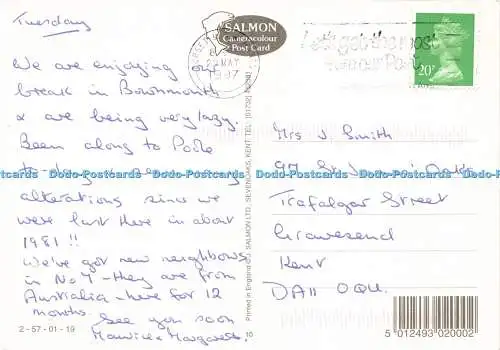 Tuesday
We are enjoying our
break in Bournmouth
& are being very lazy.
Been along to Poole
to-day
alterations since we
were last there in about
1981 !!
We've got new neighbours
in No 7 - they are from
Australia - here for 12
months.
See you soon
Maurice & Margaret.
2-57-01-19
SALMON
Cameracolour
Post Card
MAY
1997
Let's get the most
our Post
20P
Printed in England © J. SALMON LTD., SEVENOAKS, KENT TEL: (01732)
10
Mrs J Smith
97
Trafalgar Street
Gravesend
Kent
DA11 0QU.
5 012493 020002
Dodo-Postcards Dodo-Postcards Dodo-Postcards Dodo-Postcards Dodo-Postcards Dodo-Postcards